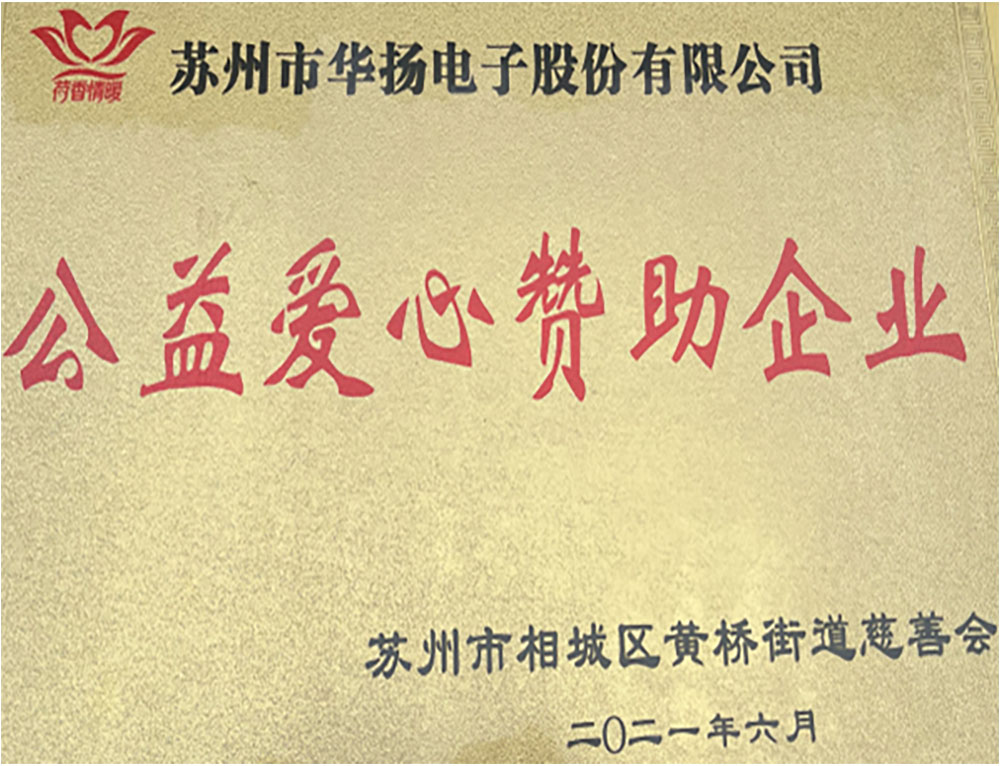 荷香情暖
苏州市华扬电子股份有限公司
公益爱心赞助企业
苏州市相城区黄桥街道慈善会
二〇二一年六月